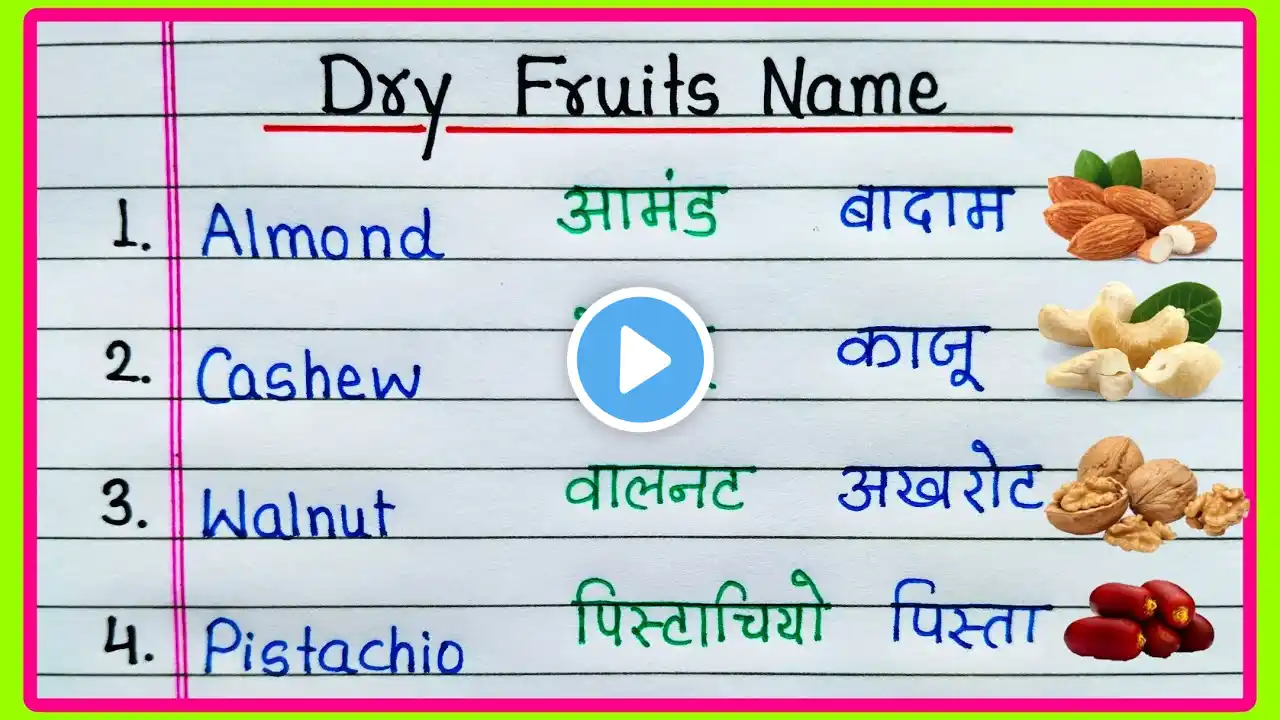 Dry Fruits Name
1. Almond आमंड बादाम
2. Cashew काजू
3. Walnut वालनट अखरोट
4. Pistachio पिस्टाचियो पिस्ता